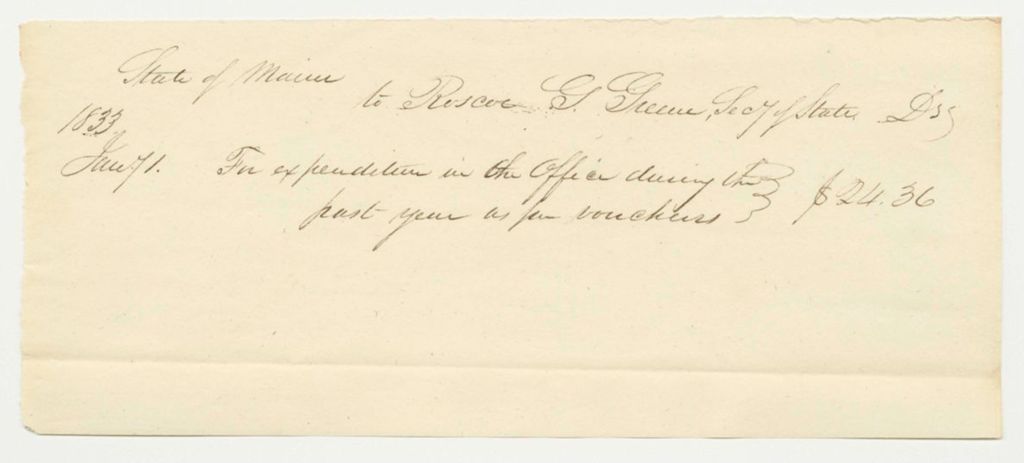 State of Maine
to Roscoe G. Greene, Secy of State Dr,
1833
Jany 1. For expenditure in the Office during the } $24.36
past year as per vouchers }